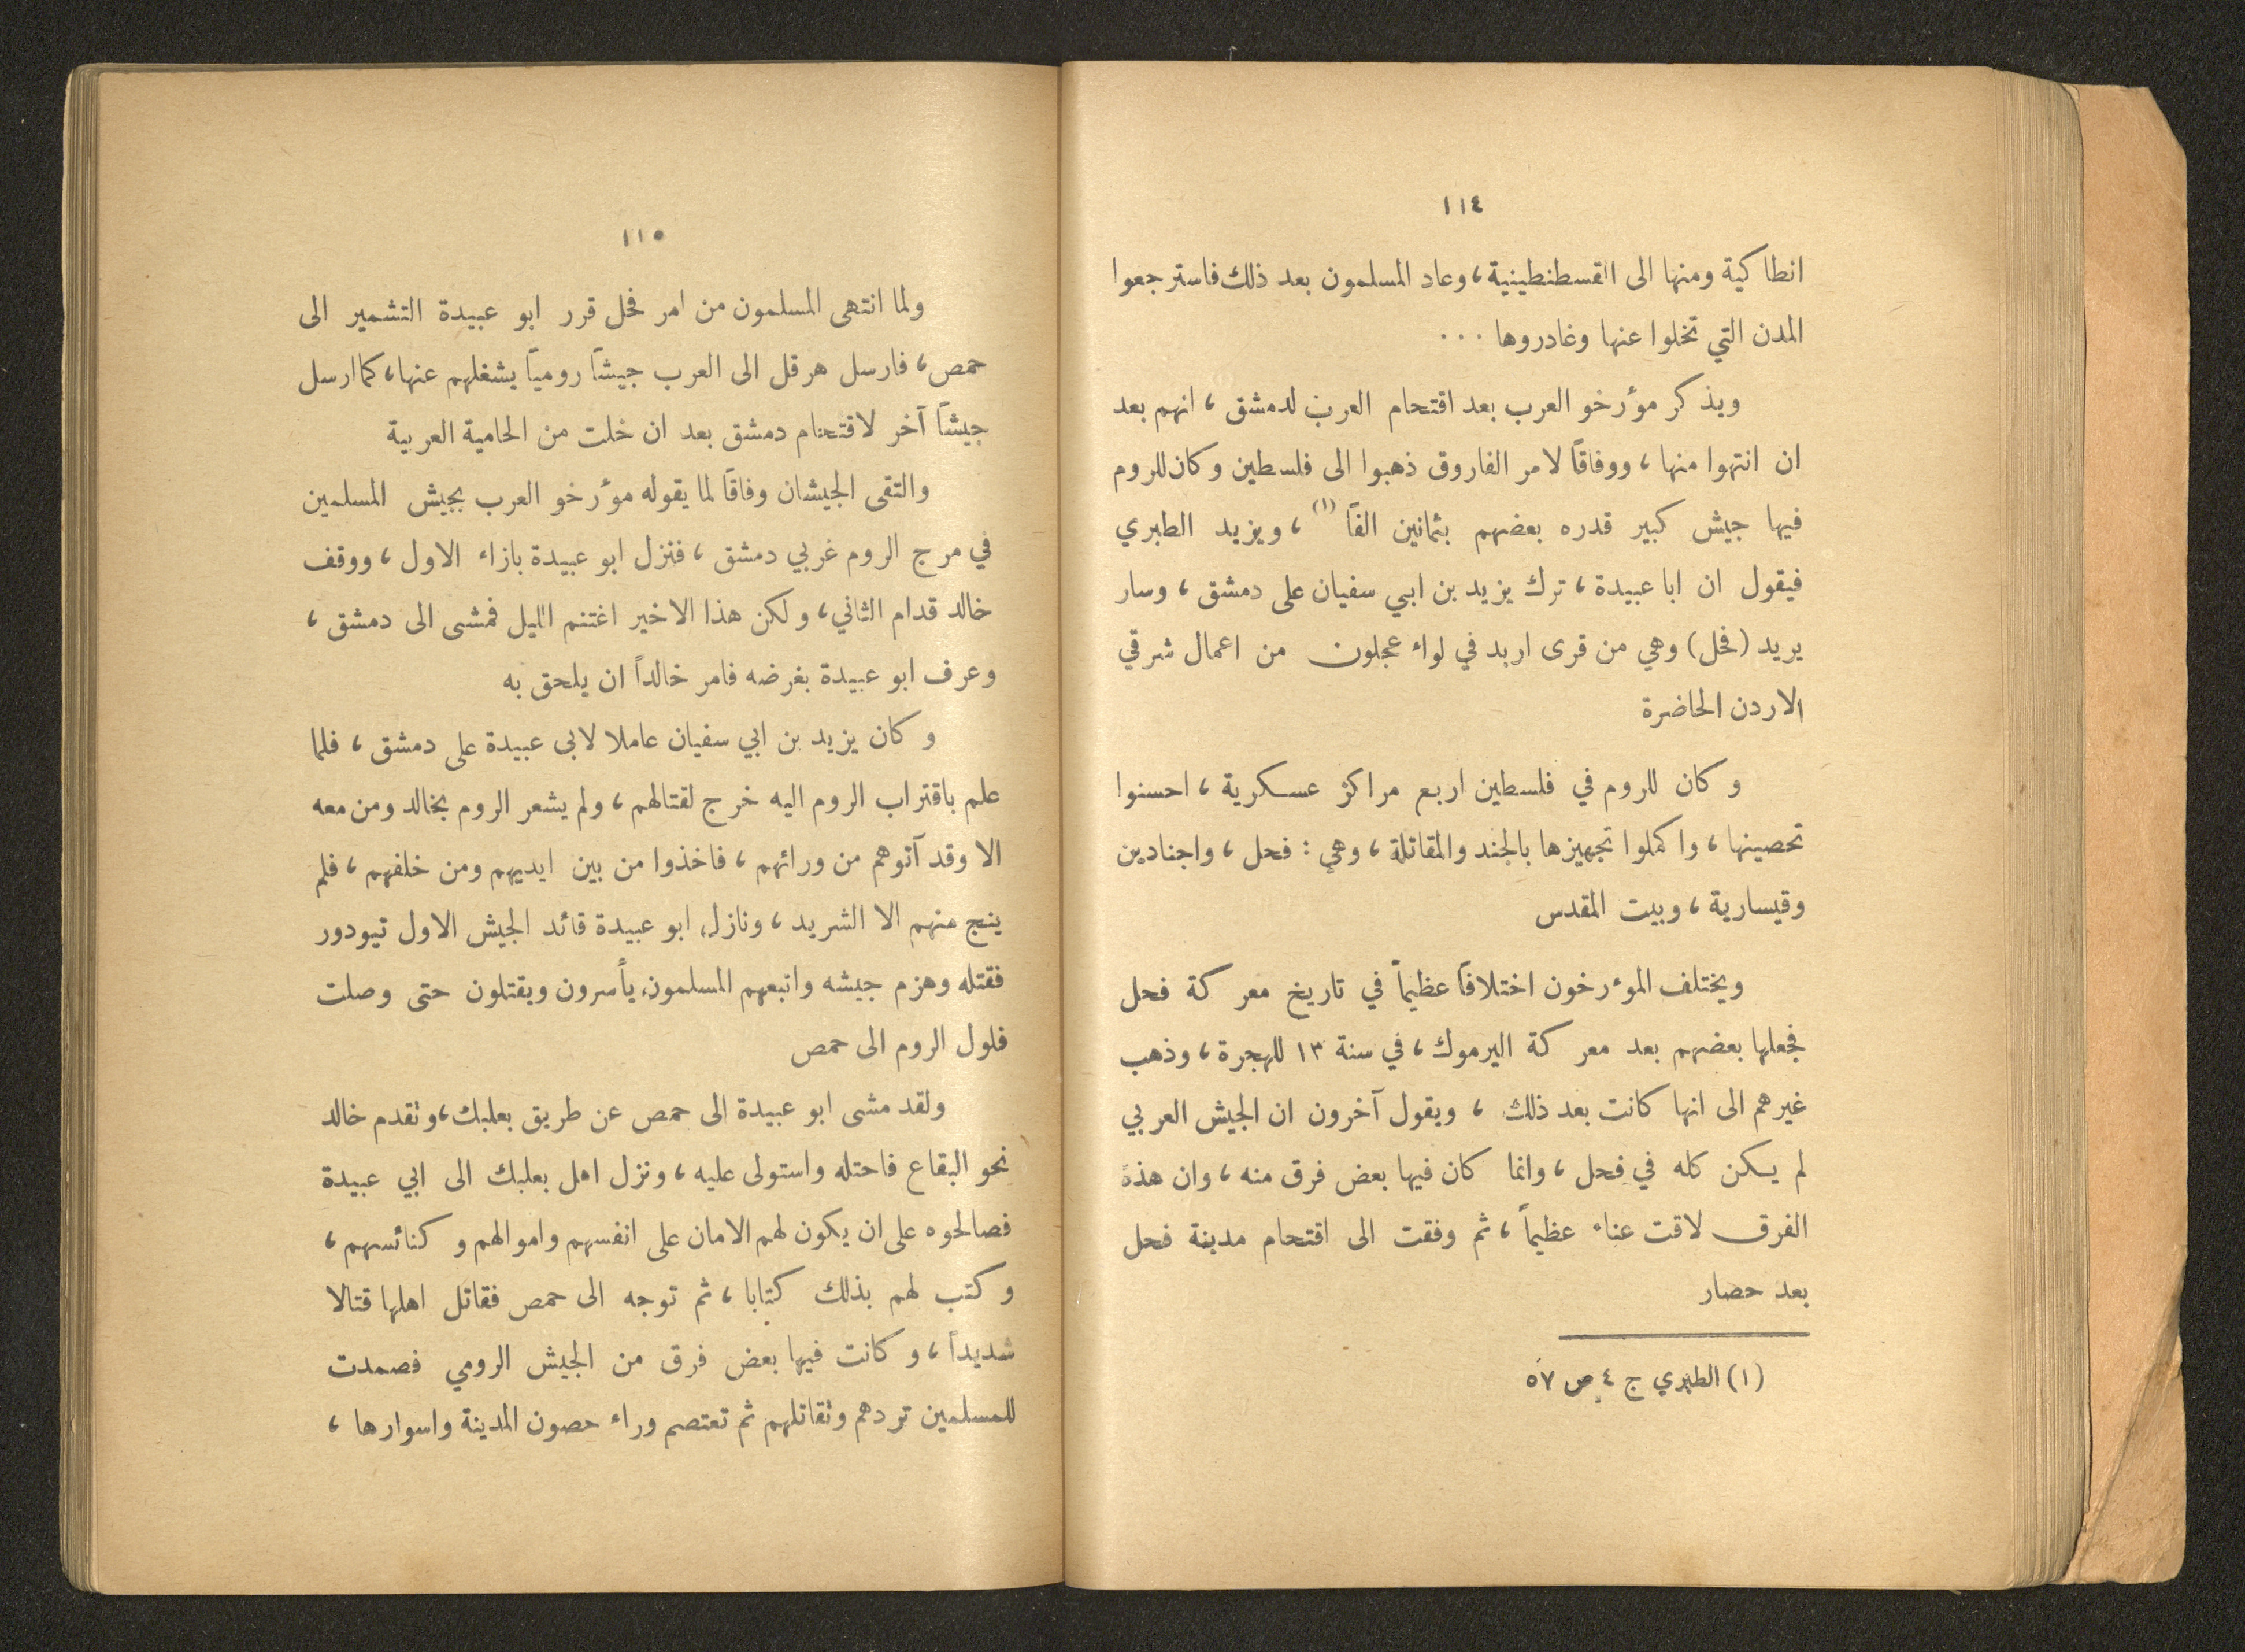 ١١٤
انطاكية ومنها الى القسطنطينية، وعاد المسلمون بعد ذلك فاسترجعوا
المدن التي تخلوا عنها وغادروها ...
ويذكر مؤرخو العرب بعد اقتحام العرب لدمشق، انهم بعد
ان انتهوا منها، ووفاقاً لامر الفاروق ذهبوا الى فلسطين وكان للروم
فيها جيش كبير قدره بعضهم بثمانين الفاً (١)، ويزيد الطبري
فيقول ان ابا عبيدة، ترك يزيد بن ابي سفيان على دمشق، وسار
يريد (فحل) وهي من قرى اربد في لواء عجلون من اعمال شرقي
الاردن الحاضرة
وكان للروم في فلسطين اربع مراكز عسكرية، احسنوا
تحصينها، واكملوا تجهيزها بالجند والمقاتلة، وهي: فحل، واجنادين
وقيسارية، وبيت المقدس
ويختلف المؤرخون اختلافاً عظيماً في تاريخ معركة فحل
فجعلها بعضهم بعد معركة اليرموك، في سنة ١٣ للهجرة، وذهب
غيرهم الى انها كانت بعد ذلك، ويقول آخرون ان الجيش العربي
لم يكن كله في فحل، وانما كان فيها بعض فرق منه، وان هذه
الفرق لاقت عناء عظيماً، ثم وفقت الى اقتحام مدينة فحل
بعد حصار
(١) الطبري ج ٤ ص ٥٧
١١٥
ولما انتهى المسلمون من امر فحل قرر ابو عبيدة التشمير الى
حمص، فارسل هرقل الى العرب جيشاً رومياً يشغلهم عنها، كما ارسل
جيشاً آخر لاقتحام دمشق بعد ان خلت من الحامية العربية
والتقى الجيشان وفاقاً لما يقوله مؤرخو العرب بجيش المسلمين
في مرج الروم غربي دمشق، فنزل ابو عبيدة بازاء الاول، ووقف
خالد قدام الثاني، ولكن هذا الاخير اغتنم الليل فمشى الى دمشق،
وعرف ابو عبيدة بغرضه فامر خالداً ان يلحق به
وكان يزيد بن ابي سفيان عاملا لابي عبيدة على دمشق، فلما
علم باقتراب الروم اليه خرج لقتالهم، ولم يشعر الروم بخالد ومن معه
الا وقد آتوهم من ورائهم، فاخذوا من بين ايديهم ومن خلفهم، فلم
ينج منهم الا الشريد، ونازل ابو عبيدة قائد الجيش الاول تيودور
فقتله وهزم جيشه واتبعهم المسلمون يأسرون ويقتلون حتى وصلت
فلول الروم الى حمص
ولقد مشى ابو عبيدة الى حمص عن طريق بعلبك، وتقدم خالد
نحو البقاع فاحتله واستولى عليه، ونزل اهل بعلبك الى ابي عبيدة
فصالحوه على ان يكون لهم الامان على انفسهم واموالهم وكنائسهم،
وكتب لهم بذلك كتابا، ثم توجه الى حمص فقاتل اهلها قتالا
شديداً، وكانت فيها بعض فرق من الجيش الرومي فصمدت
للمسلمين تردهم وتقاتلهم ثم تعتصم وراء حصون المدينة واسوارها،